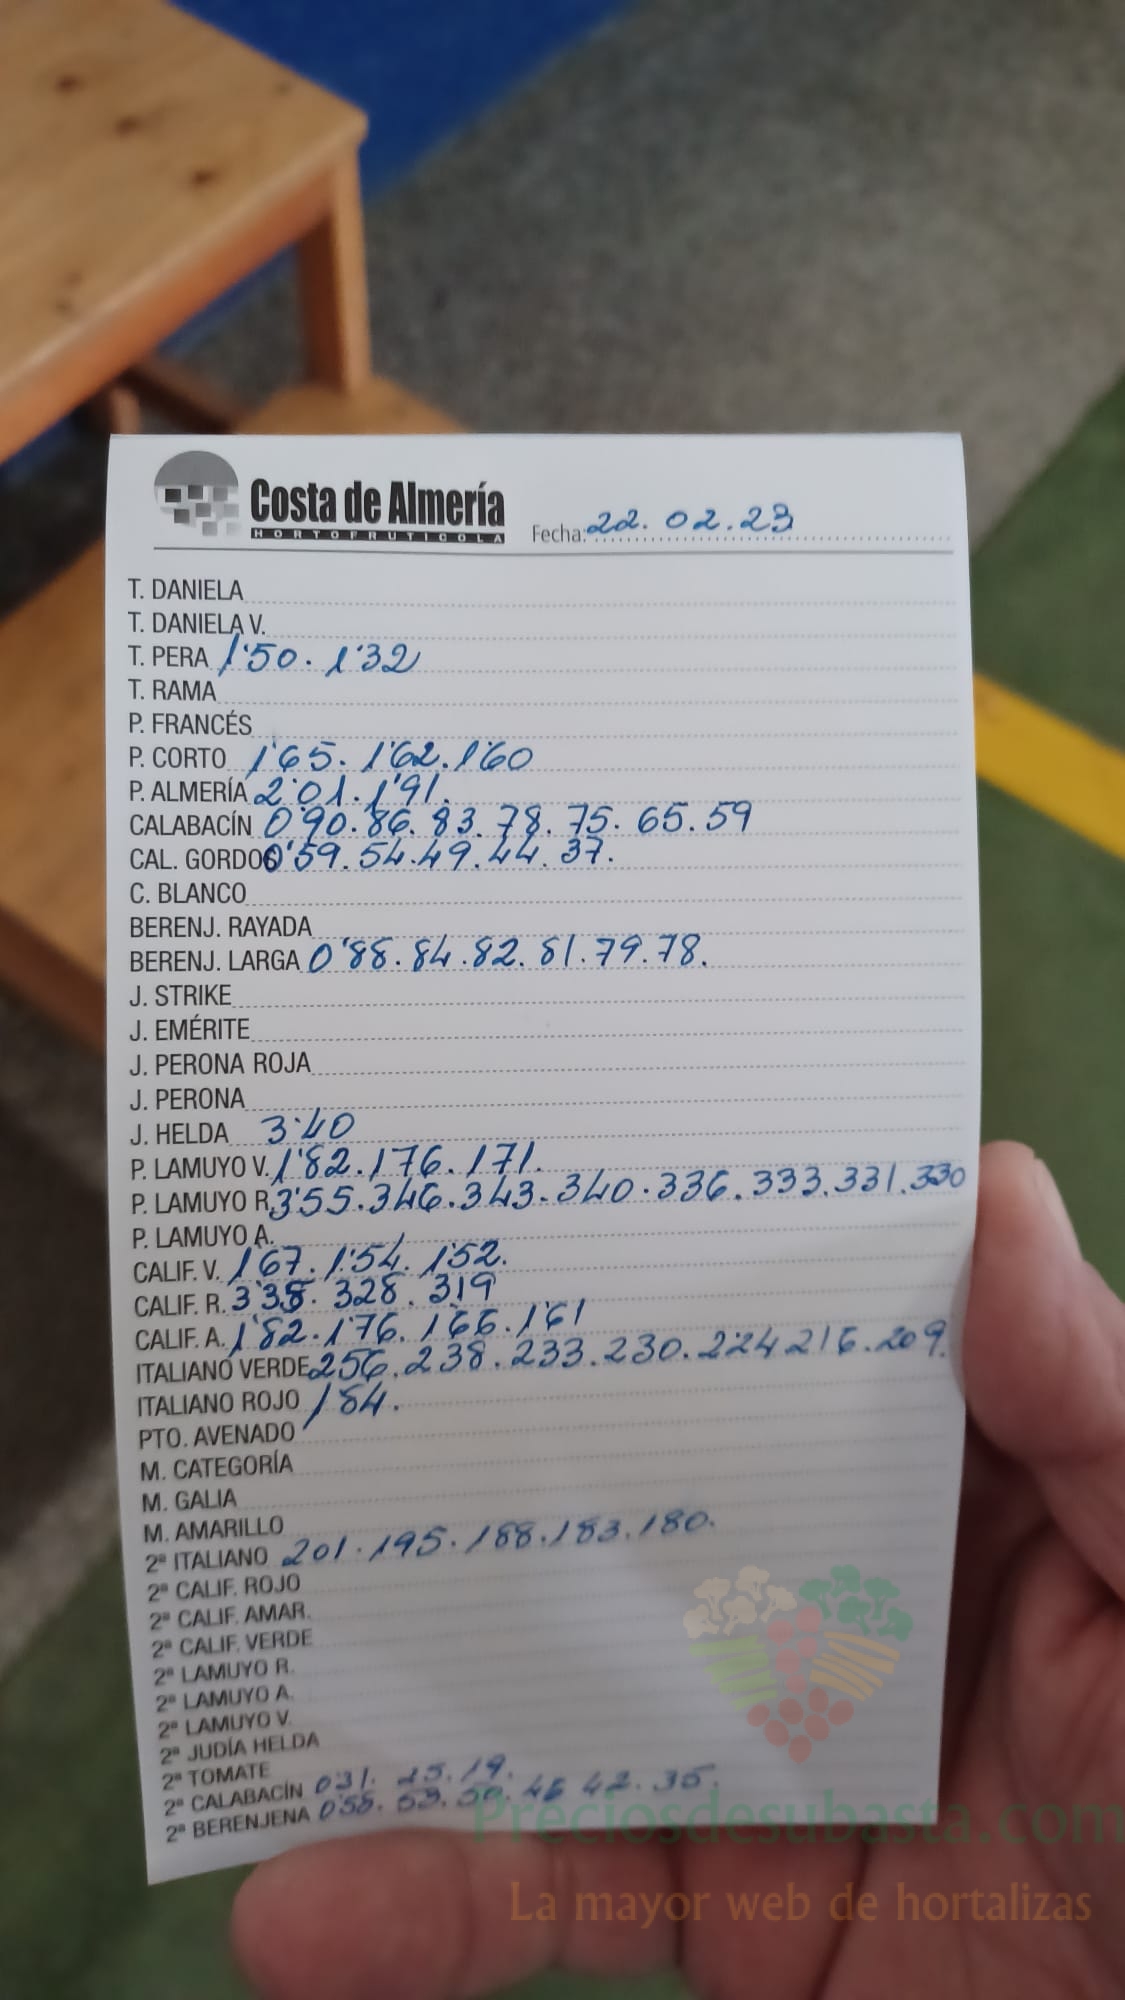 Costa de Almería
HORTOFRUTICOLA
Fecha: 22.02.23
T. DANIELA
T. DANIELA V.
T. PERA 1'50. 1'32
T. RAMA
P. FRANCÉS
P. CORTO 1'65. 1'62. 1'60
P. ALMERÍA 2'01. 1'91.
CALABACÍN 0'90. 86. 83. 78. 75. 65. 59
CAL. GORDO 0'59. 54. 49. 44. 37.
C. BLANCO
BERENJ. RAYADA
BERENJ. LARGA 0'88. 84. 82. 81. 79. 78.
J. STRIKE
J. EMÉRITE
J. PERONA ROJA
J. PERONA
J. HELDA 3'40
P. LAMUYO V. 1'82. 176. 171.
P. LAMUYO R. 3'55. 346. 343. 340. 336. 333. 331. 330
P. LAMUYO A.
CALIF. V. 1'67. 1'54. 152.
CALIF. R. 328. 319
CALIF. A. 1'82. 176. 166. 161
ITALIANO VERDE 256. 238. 233. 230. 224 216. 209.
ITALIANO ROJO 184.
PTO. AVENADO
M. CATEGORÍA
M. GALIA
M. AMARILLO
2ª ITALIANO 201. 195. 188. 183. 180.
2ª CALIF. ROJO
2ª CALIF. AMAR.
2ª CALIF. VERDE
2ª LAMUYO R.
2ª LAMUYO A.
2ª LAMUYO V.
2ª JUDÍA HELDA
2ª TOMATE
2ª CALABACÍN 031. 25. 19.
2ª BERENJENA 53. 50. 42. 35.
Preciosdesubasta.com
La mayor web de hortalizas